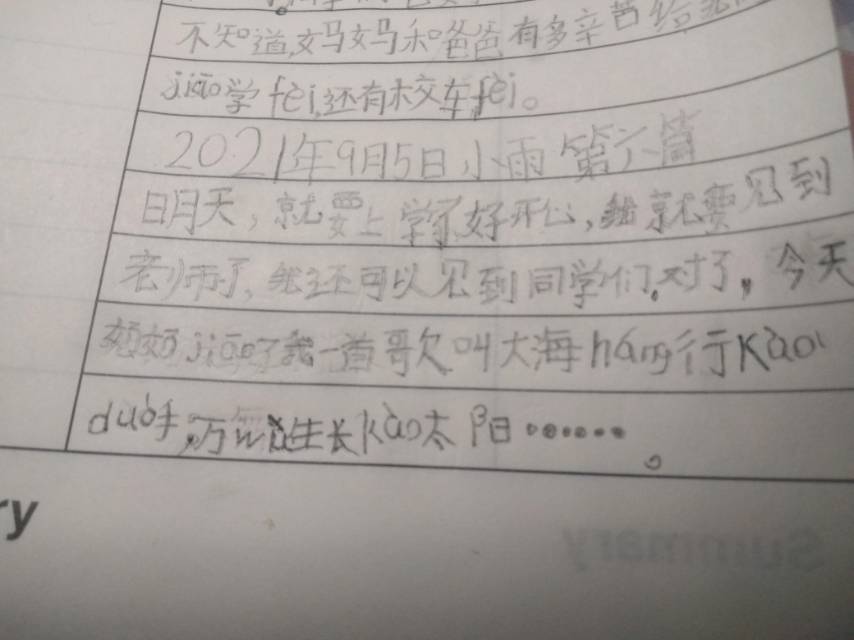 不知道,妈妈和爸爸有多辛苦给我
jiāo学fèi,还有校车fèi。
2021年9月5日小雨 第六篇
明天，就要上学了好开心,我就要见到
老师了,我还可以见到同学们。对了，今天
jiāo了我一首歌叫大海háng行Kào
duò手,万wù生长kào太阳⋯⋯。
ry
Summary